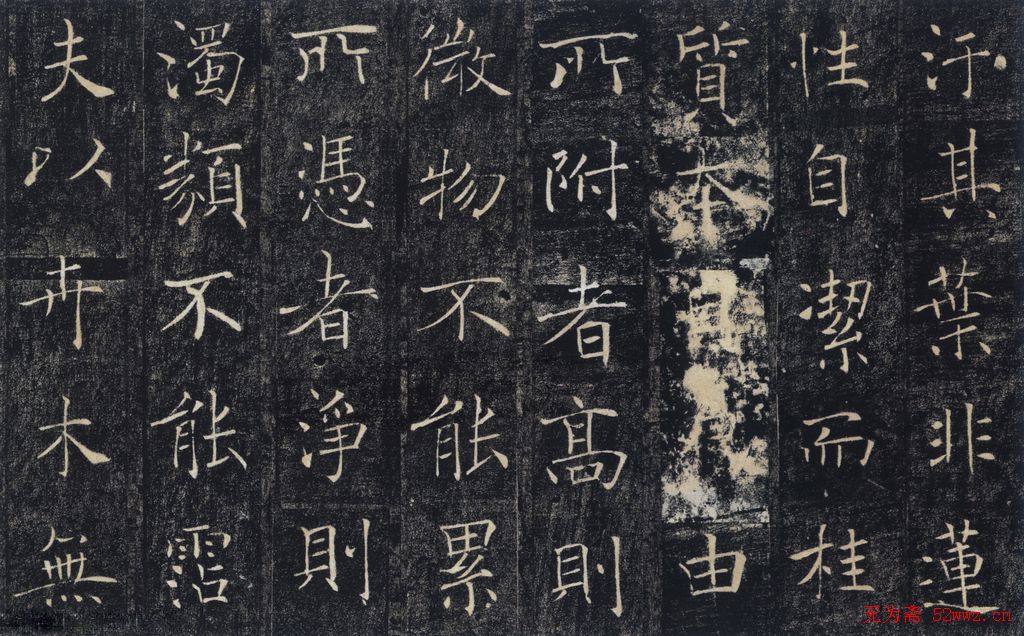 汙其葉非蓮
性自潔而桂
質本由
所附者高則
微物不能累
所憑者淨則
濁類不能霑
夫以卉木無
无为斋 52wwz.cn